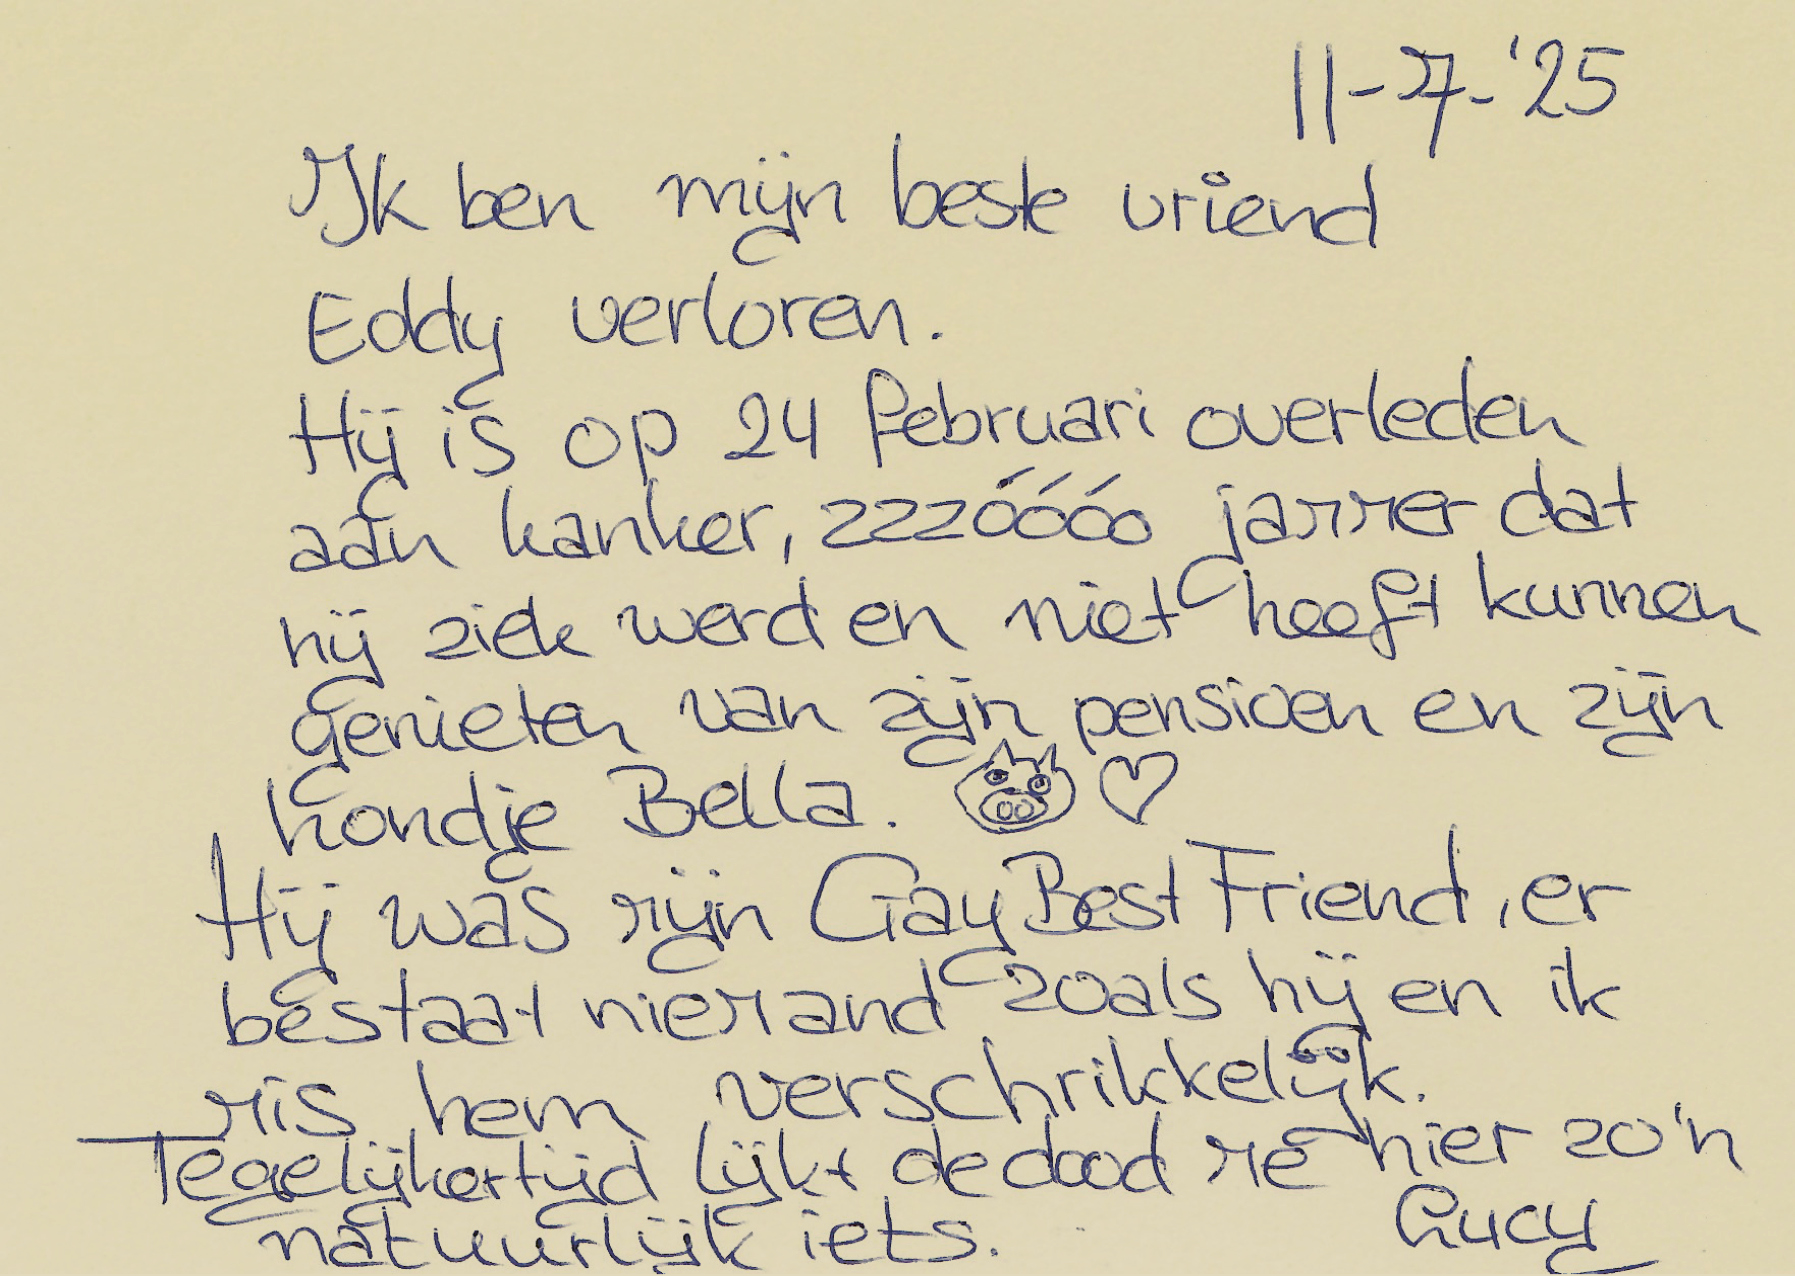 11-7-'25
Ik ben mijn beste vriend
Eddy verloren.
Hij is op 24 februari overleden
aan kanker, zzzóóóo jammer dat
hij ziek werd en niet heeft kunnen
genieten van zijn pensioen en zijn
hondje Bella.
Hij was mijn Gay Best Friend, er
bestaat niemand zoals hij en ik
mis hem verschrikkelijk.
Tegelijkertijd lijkt de dood me hier zo'n
natuurlijk iets.
Lucy